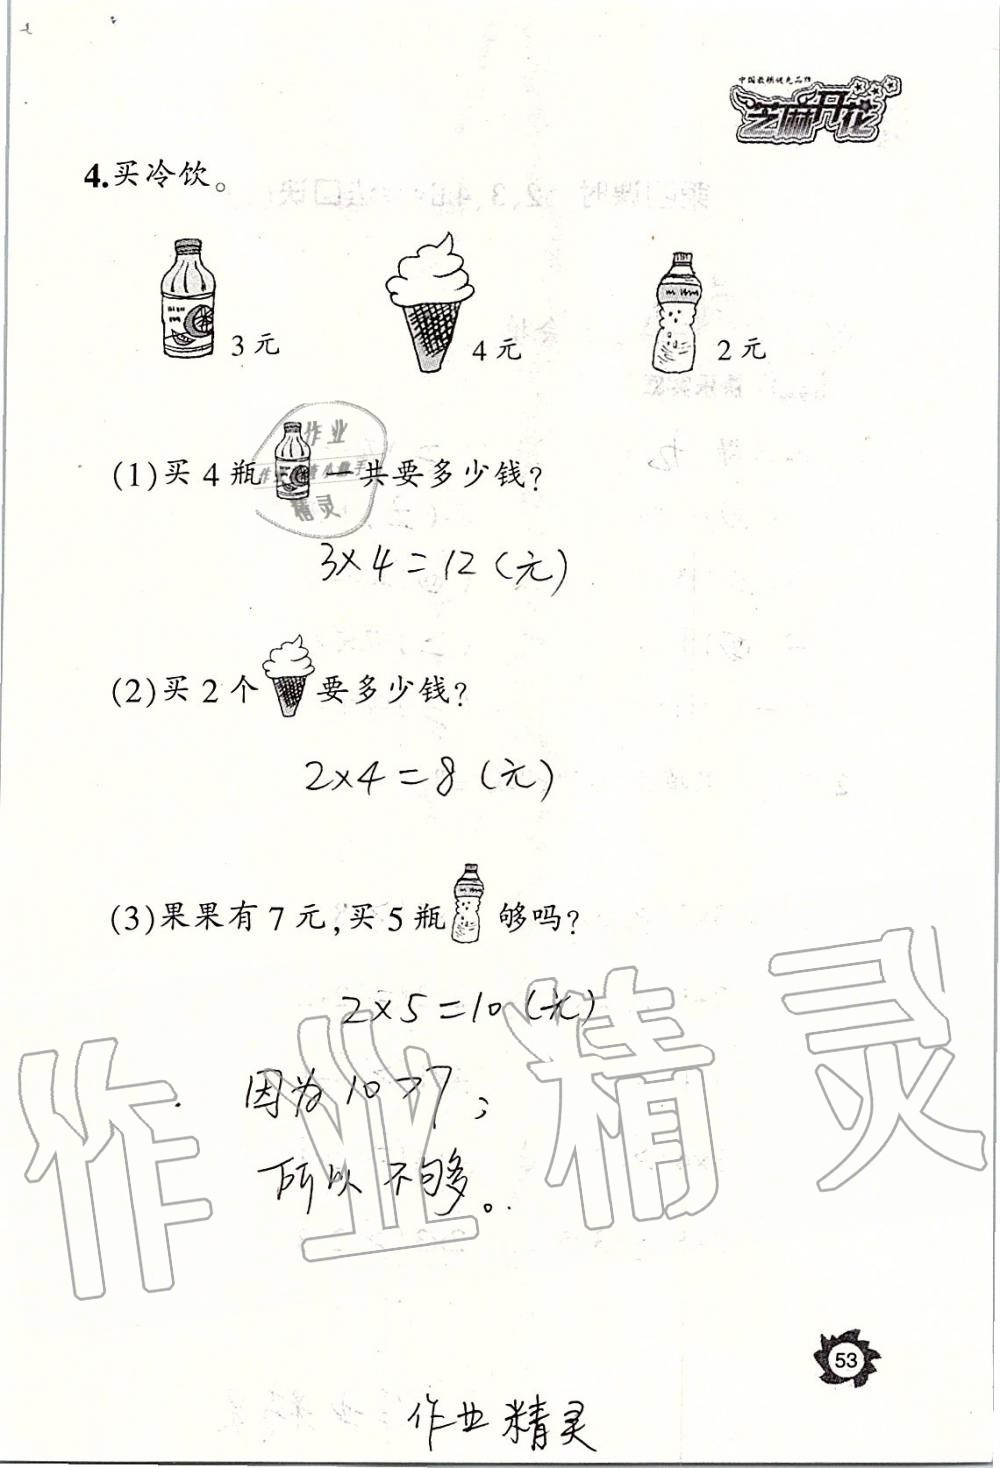 中国教辅优先品牌
芝麻开花
4.买冷饮。
3元 4元 2元
作业
精灵
(1)买4瓶 一共要多少钱?
3×4=12(元)
(2)买2个 要多少钱?
2×4=8(元)
(3)果果有7元,买5瓶 够吗?
2×5=10(元)
因为10>7,
所以不够。
作业精灵
53
作业精灵